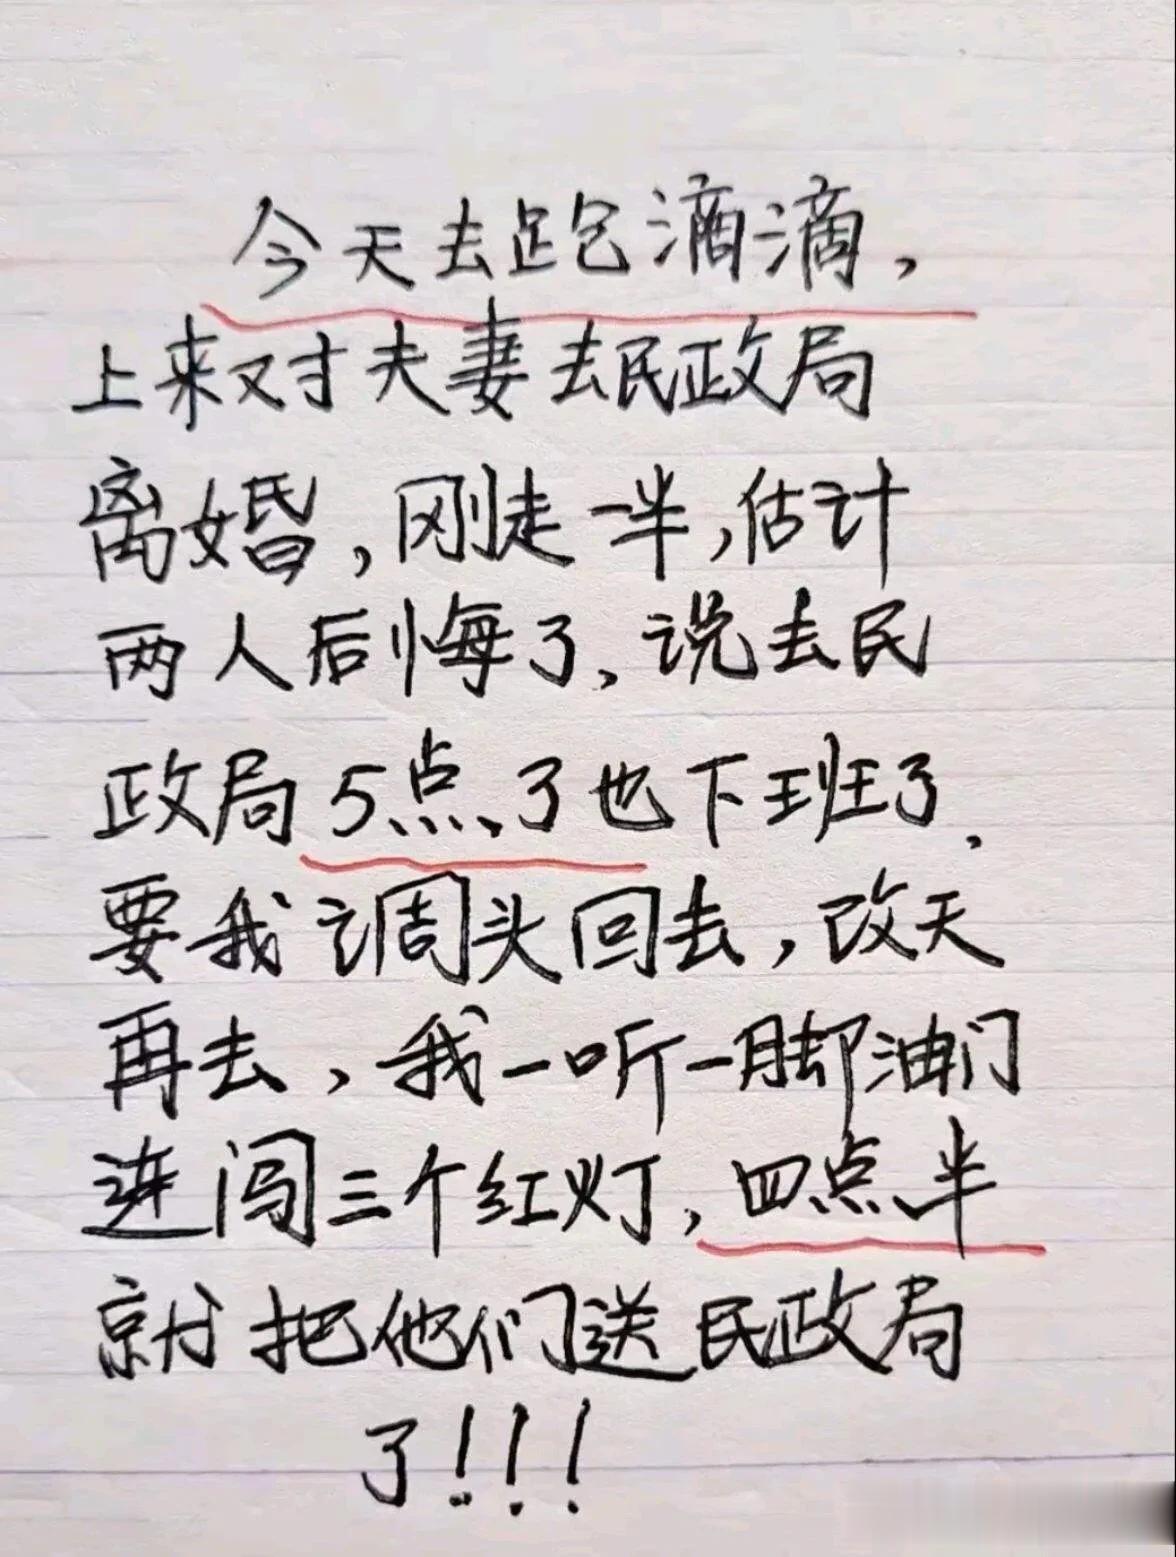 今天去跑滴滴，
上来对夫妻去民政局
离婚，刚走一半，估计
两人后悔了，说去民
政局5点了也下班了，
要我调头回去，改天
再去，我一听一脚油门
连闯三个红灯，四点半
就把他们送民政局
了！！！